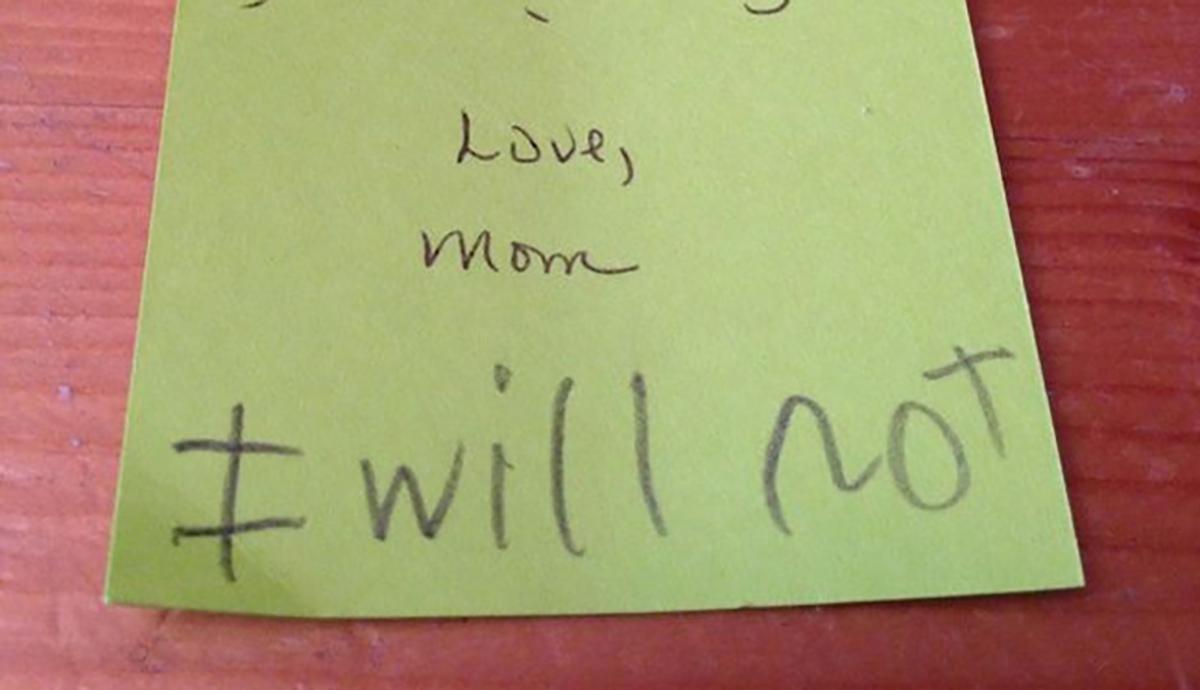 Love,
Mom
I will not